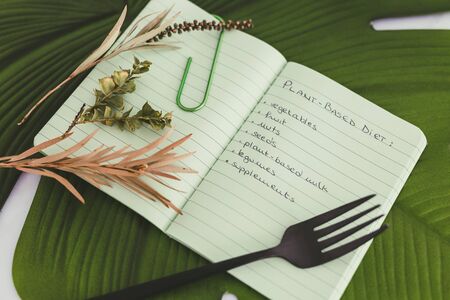 PLANT-BASED DIET:
• vegetables
• fruit
• nuts
• seeds
• plant-based milk
• legumes
• supplements